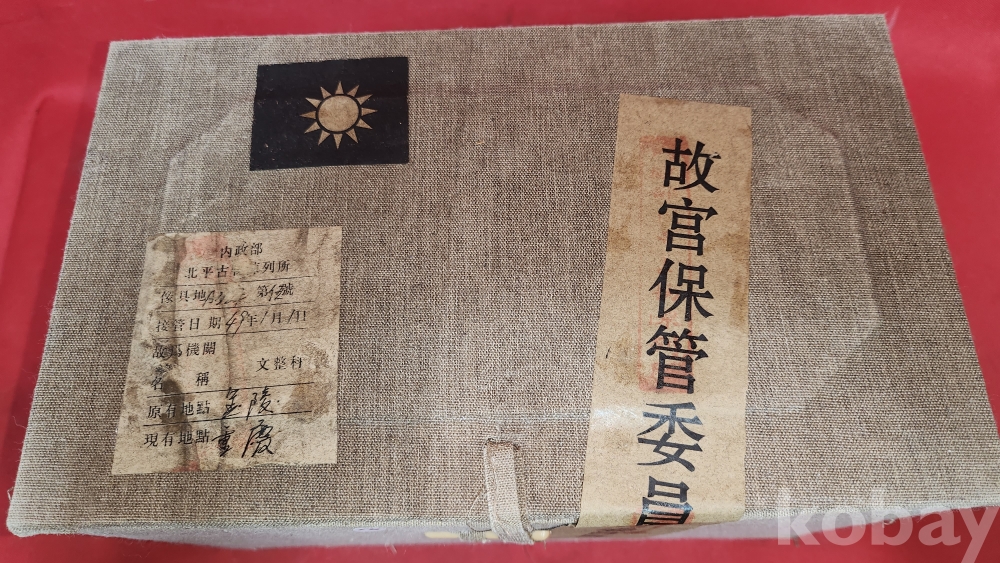 故宮保管委員
内政部
北平古 列所
傢具地 第 號
接管日期49年1月1日
故爲機關
文整科
名稱
原有地點 金陵
現有地點 重慶
kobay